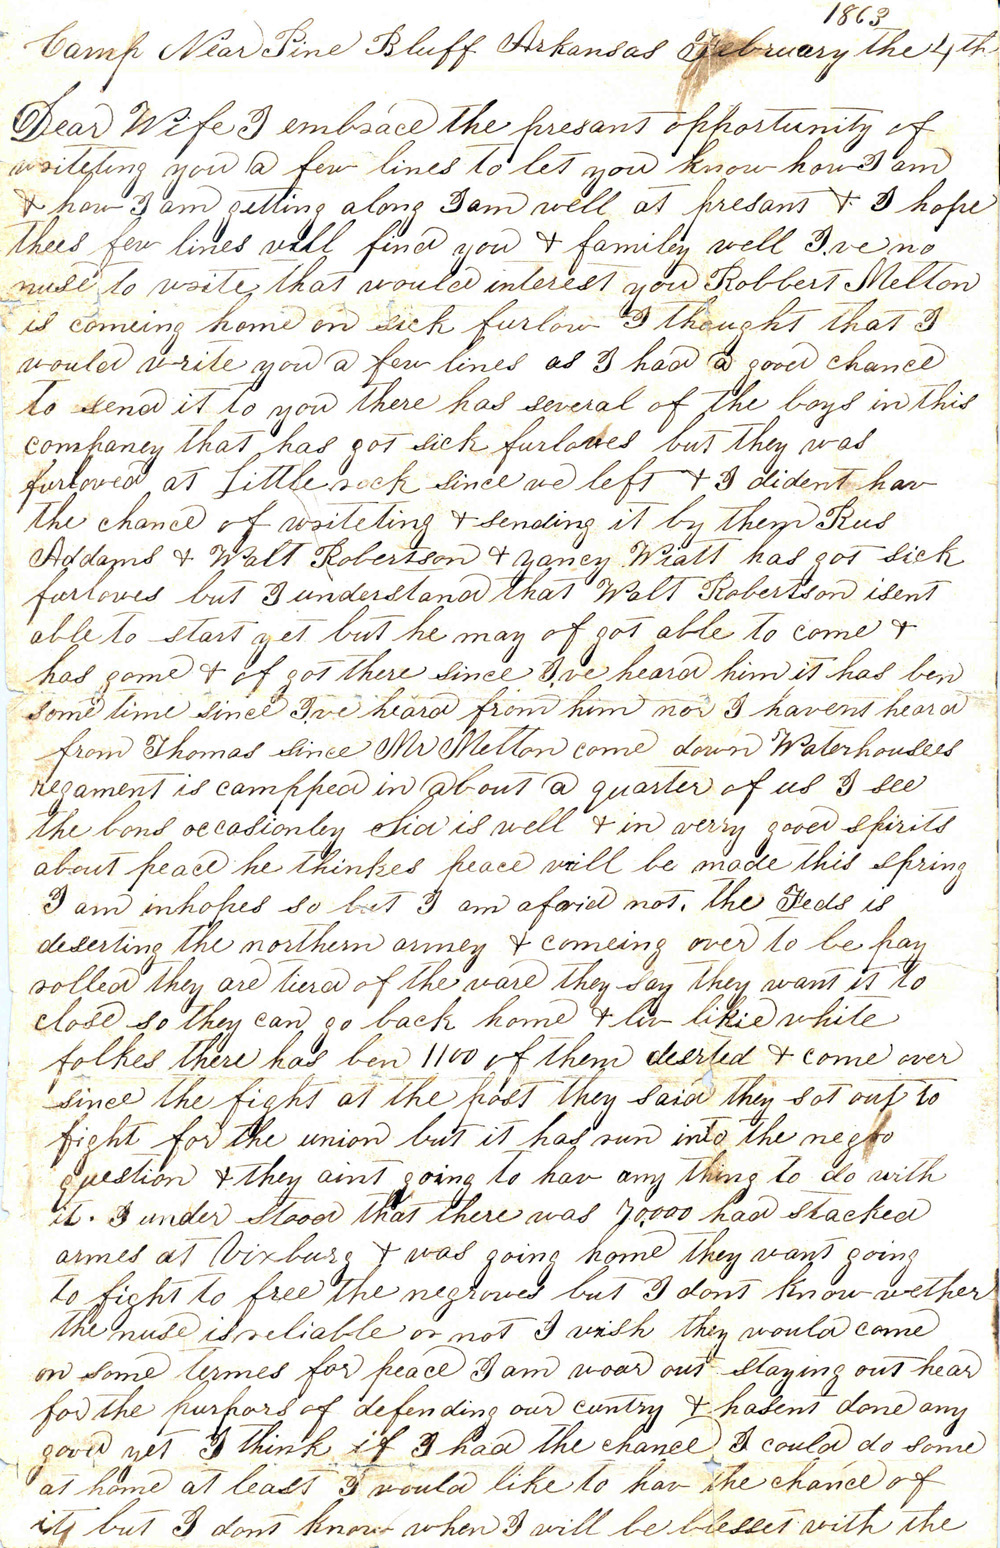 1863
Camp Near Pine Bluff Arkansas February the 4th
Dear Wife I embrace the presant opportunity of
writeting you a few lines to let you know how I am
& how I am getting along I am well at presant & I hope
thees few lines will find you & familey well I.ve no
nuse to write that would interest you Robbert Melton
is comeing home on sick furlow I thought that I
would write you a few lines as I had a good chance
to send it to you there has several of the boys in this
companey that has got sick furlowes but they was
furloved at Little rock since we left & I dident hav
the chance of writeting & sending it by them Rus
Addams & Walt Robertson & yancy Wiatt has got sick
furloves but I understand that Walt Robertson isent
able to start yet but he may of got able to come &
has gone & of got there since I.ve heard him it has ben
some time since I.ve heard from him nor I havent heard
from Thomas since Mr Melton come down Waterhousees
regament is campped in about a quarter of us I see
the bons occasionley Sid is well & in verry good spirits
about peace he thinkes peace will be made this spring
I am inhopes so but I am afraid not. the Feds is
deserting the northern armey & comeing over to be pay
rolled they are tierd of the ware they say they want it to
close so they can go back home & liv likie white
folkes there has ben 1100 of them deserted & come over
since the fight at the post they said they sot out to
fight for the union but it has run into the negro
question & they aint going to hav any thing to do with
it. I under stood that there was 70,000 had stacked
armes at Vixburg & was going home they want going
to fight to free the negrowes but I dont know wether
the nuse is reliable or not I wish they would come
on some termes for peace I am woar out staying out hear
for the purpors of defending our cuntry & hasent done any
good yet I think if I had the chance I could do some
at home at least I would like to hav the chance of
it but I dont know when I will be blesset with the